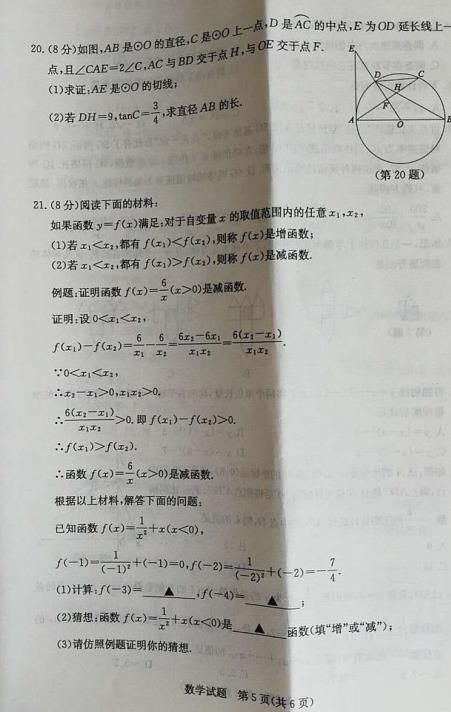 20.(8分)如图,AB是⊙O的直径,C是⊙O上一点,D是AC的中点,E为OD延长线上一
点,且∠CAE=2∠C,AC与BD交于点H,与OE交于点F.
(1)求证:AE是⊙O的切线;
(2)若DH=9,tanC=3/4,求直径AB的长.
E
D
C
H
F
A
O
B
(第20题)
21.(8分)阅读下面的材料:
如果函数y=f(x)满足:对于自变量x的取值范围内的任意x₁,x₂,
(1)若x₁<x₂,都有f(x₁)<f(x₂),则称f(x)是增函数;
(2)若x₁<x₂,都有f(x₁)>f(x₂),则称f(x)是减函数.
例题:证明函数f(x)=6/x(x>0)是减函数.
证明:设0<x₁<x₂,
f(x₁)-f(x₂)=6/x₁-6/x₂=(6x₂-6x₁)/(x₁x₂)=6(x₂-x₁)/(x₁x₂).
∵0<x₁<x₂,
∴x₂-x₁>0,x₁x₂>0.
∴6(x₂-x₁)/(x₁x₂)>0.即f(x₁)-f(x₂)>0.
∴f(x₁)>f(x₂).
∴函数f(x)=6/x(x>0)是减函数.
根据以上材料,解答下面的问题:
已知函数f(x)=1/x²+x(x<0),
f(-1)=1/(-1)²+(-1)=0,f(-2)=1/(-2)²+(-2)=-7/4.
(1)计算:f(-3)=▲,f(-4)=▲;
(2)猜想:函数f(x)=1/x²+x(x<0)是▲函数(填“增”或“减”);
(3)请仿照例题证明你的猜想.
数学试题 第5页(共6页)